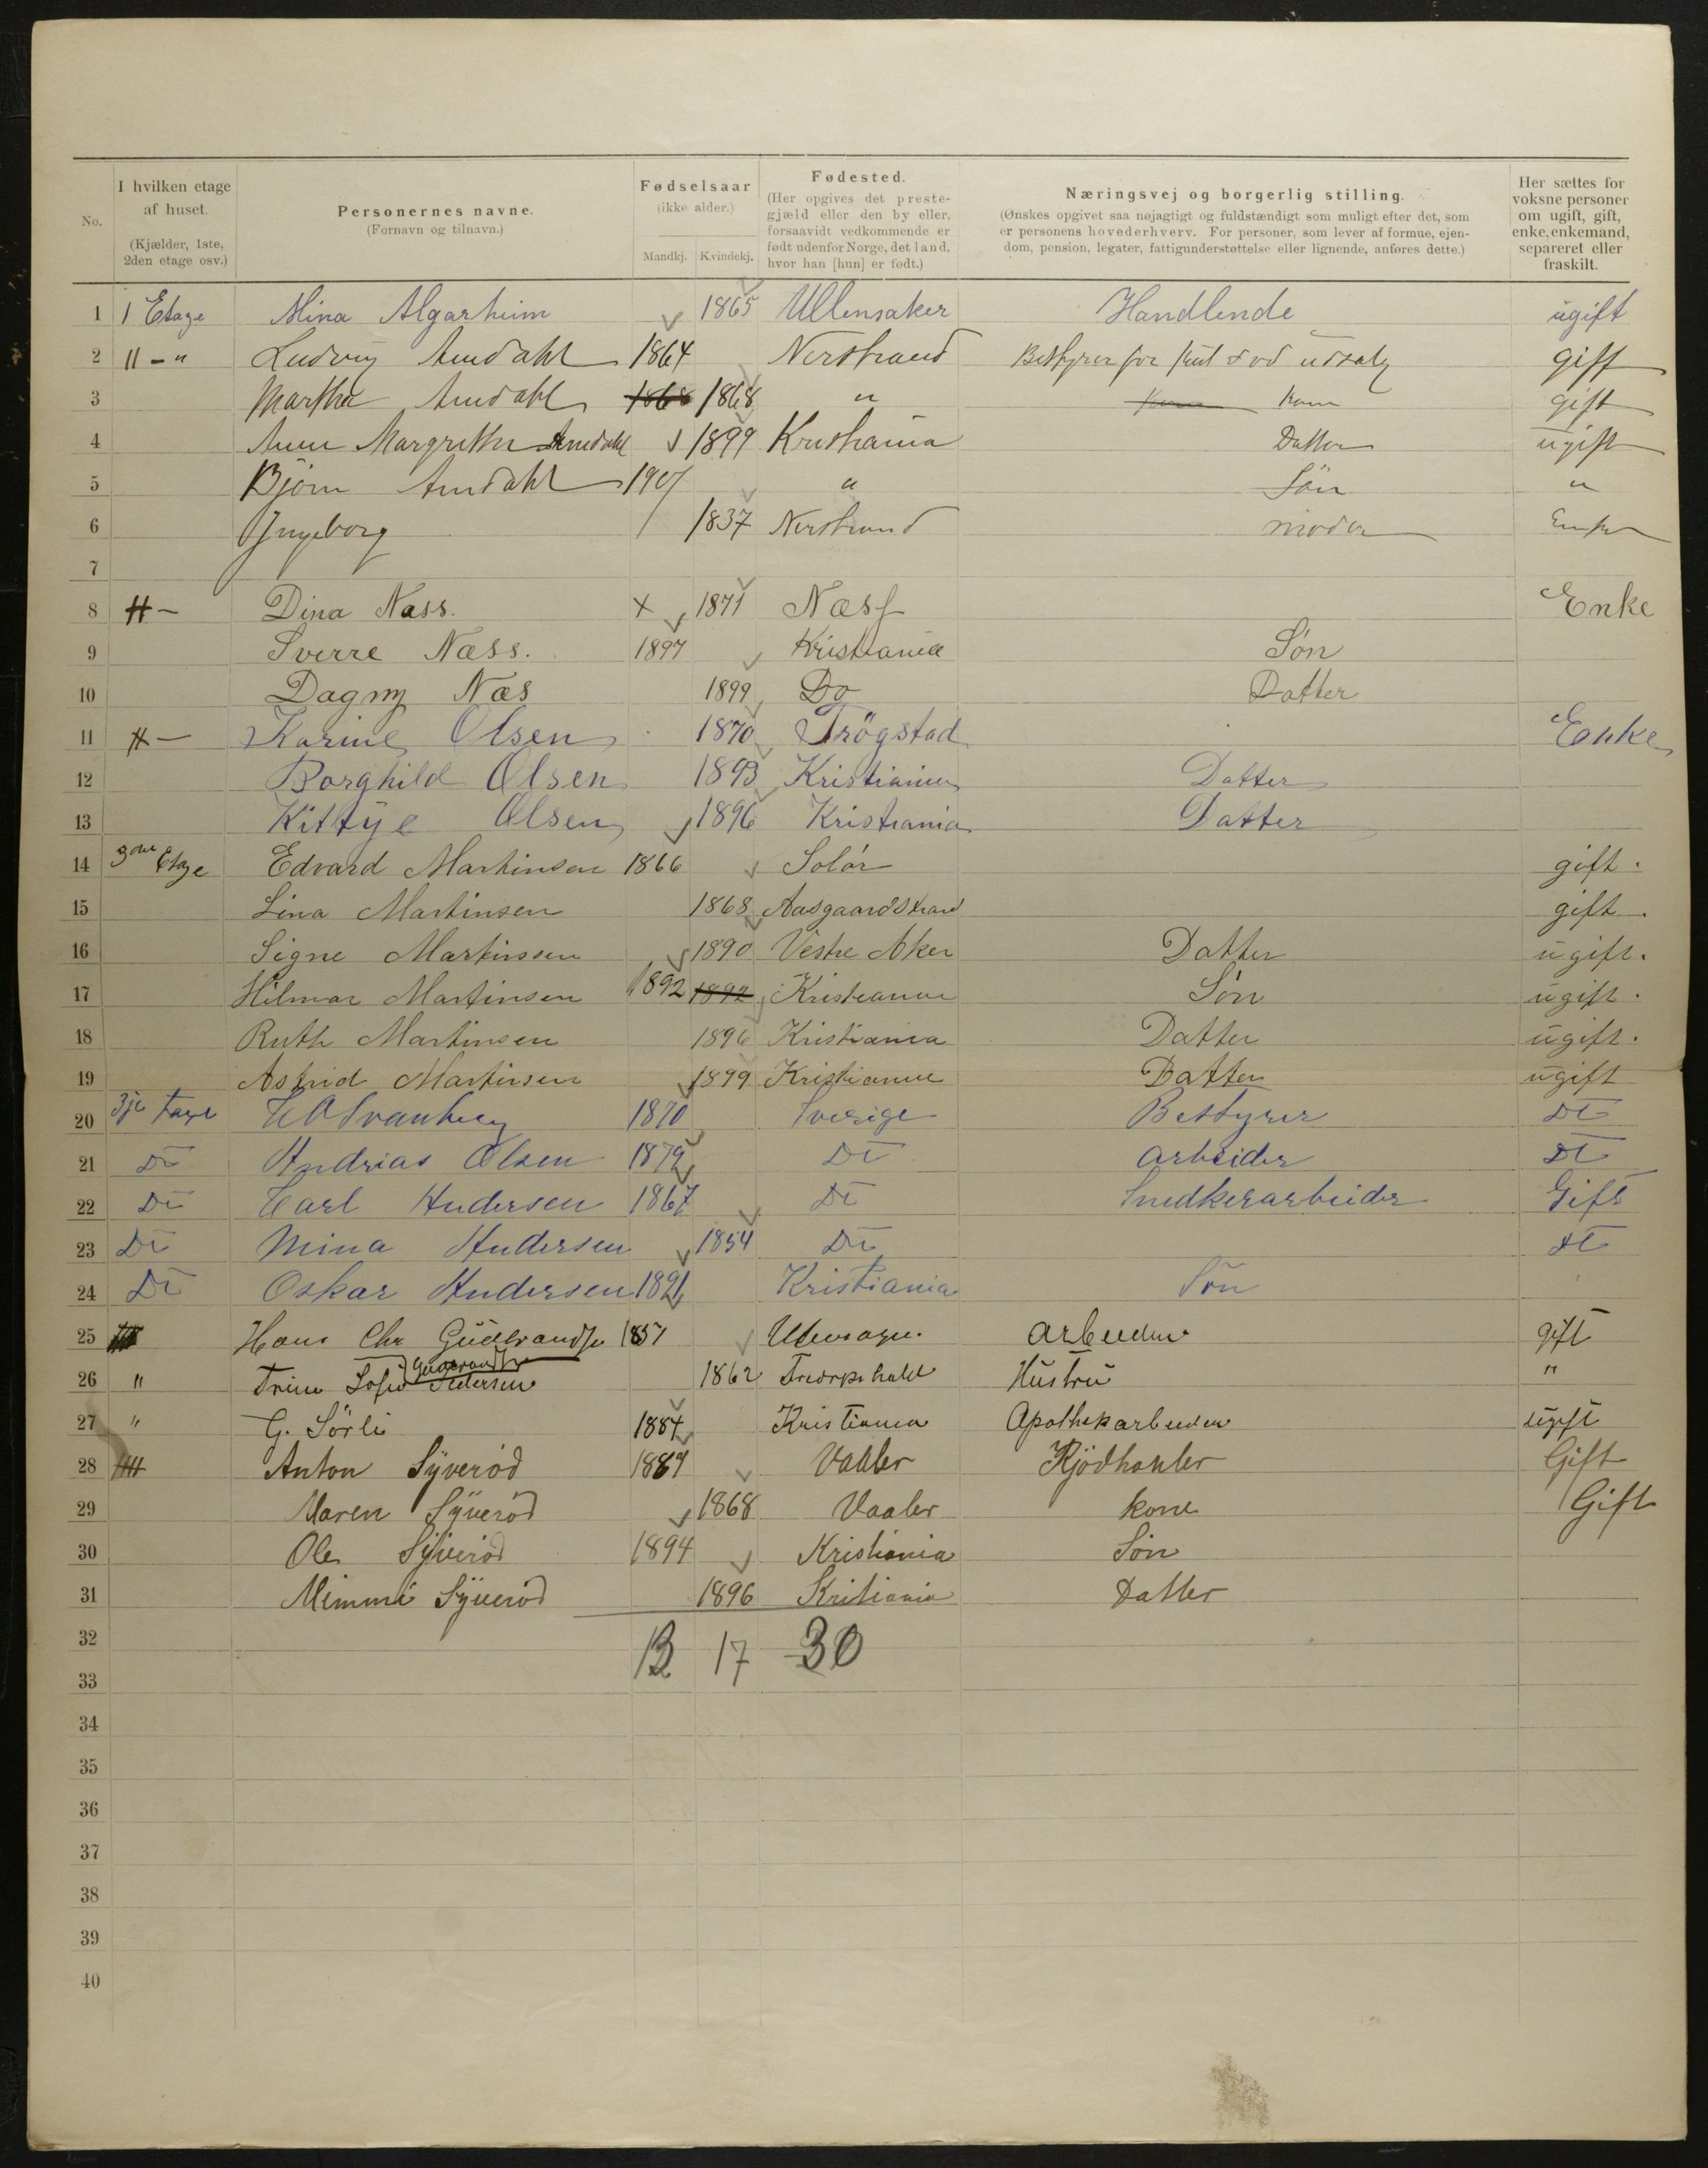 No. I hvilken etage af huset. (Kjælder, 1ste, 2den etage osv.) Personernes navne. (Fornavn og tilnavn.) Fødselsaar (ikke alder.) Mandkj. Kvindekj. Fødested. (Her opgives det prestegjæld eller den by eller, forsaavidt vedkommende er født udenfor Norge, det land, hvor han [hun] er født.) Næringsvej og borgerlig stilling. (Ønskes opgivet saa nøjagtigt og fuldstændigt som muligt efter det, som er personens hovederhverv. For personer, som lever af formue, ejendom, pension, legater, fattigunderstøttelse eller lignende, anføres dette.) Her sættes for voksne personer om ugift, gift, enke, enkemand, separeret eller fraskilt.
1 1 Etage Mina Algarheim 1865 Ullensaker Handlende ugift
2 " - " Ludvig Amdahl 1864 Nerstrand Bestyrer for kul & ved udsalg gift
3 Martha Amdahl 1868 1868 " Kone kone gift
4 Anne Margrethe Amdahl 1899 Kristiania Datter ugift
5 Bjørn Amdahl 1907 " Søn "
6 Ingeborg 1837 Nerstrand moder Enke
7
8 Dina Næss. x 1871 Næss Enke
9 Sverre Næss. 1897 Kristiania Søn
10 Dagny Næs 1899 Do Datter
11 Karine Olsen 1870 Trögstad Enke
12 Borghild Olsen 1893 Kristiania Datter
13 Kittye Olsen 1896 Kristiania Datter
14 Etage Edvard Martinsen 1866 Solør gift.
15 Lina Martinsen 1868 Aasgaardstrand gift.
16 Signe Martinsen 1890 Vestre Aker Datter ugift.
17 Hilmar Martinsen 1892 1892 Kristiania Søn ugift.
18 Ruth Martinsen 1896 Kristiania Datter ugift.
19 Astrid Martinsen 1899 Kristiania Datter ugift
20 3je Etage Svanberg 1870 Sverige Bestyrer Do
21 Do Andrias Olsen 1879 Do arbeider Do
22 Do Carl Andersen 1867 Do Snedkerarbeider Gift
23 Do Mina Andersen 1854 Do Do
24 Do Oskar Andersen 1891 Kristiania Søn
25 Hans Chr Gudbrandsen 1857 arbeider gift
26 " Trine Sofie Pedersen Gudbrandsen 1862 Fredrikshald Hustru "
27 " G. Sörli 1884 Kristiania Apothekarbeider ugift
28 Anton Syverød 1869 Vaaler Kjødhandler Gift
29 Maren Syverød 1868 Vaaler kone Gift
30 Ole Syverød 1894 Kristiania Søn
31 Mimmi Syverød 1896 Kritiania Datter
32 13 17 30
33
34
35
36
37
38
39
40